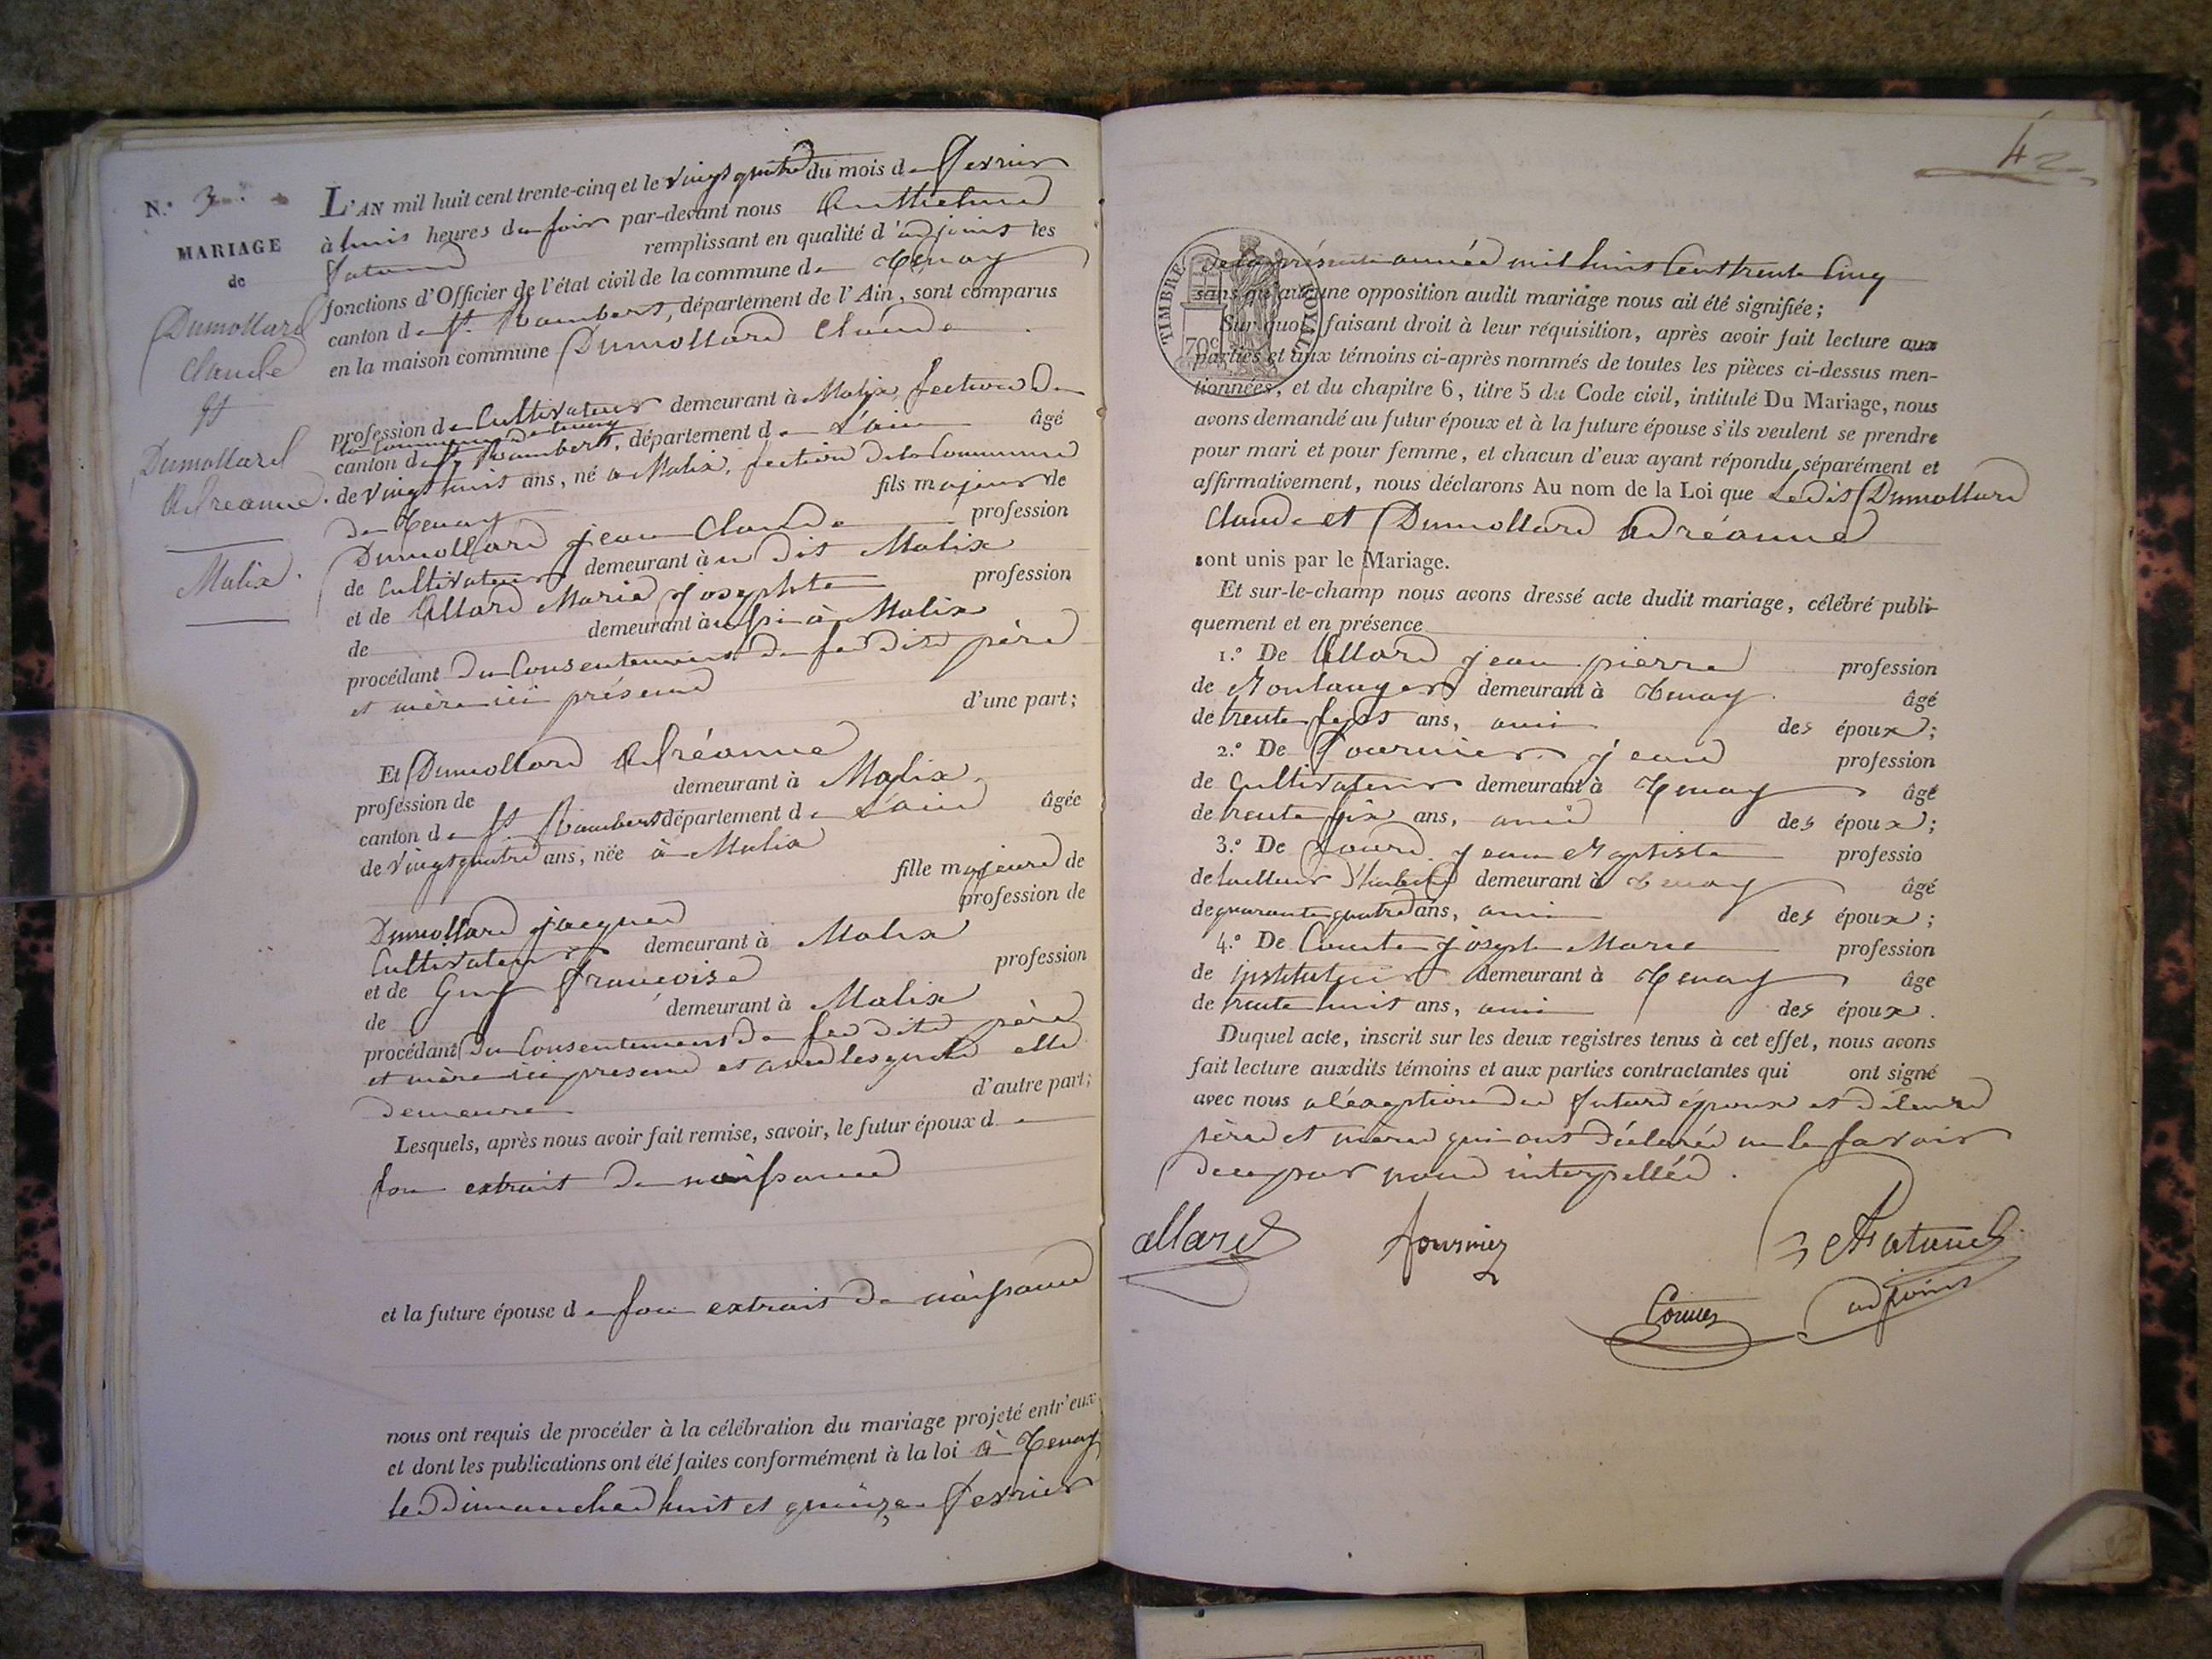 N.º 3
MARIAGE
de
Dumollard
Claude
et
Dumollard
Adréanne
Malix
L'AN mil huit cent trente-cinq et le vingt quatre du mois de fevrier
à huit heures du soir par-devant nous Anthelme
Tatand remplissant en qualité d'adjoint les
fonctions d'Officier de l'état civil de la commune de Tenay
canton de St. Rambert, département de l'Ain, sont comparus
en la maison commune Dumollard Claude
profession de Cultivateur demeurant à Malix, section de
la commune de tenay
canton de St Rambert, département de L'ain âgé
de vingt huit ans, né a Malix, section de la Commune
de Tenay fils majeur de
Dumollard jean Claude profession
de Cultivateur demeurant à u dit Malix
et de Allard Marie josephte profession
de demeurant à ussi à Malix
procédant du Consentement de ses dits père
et mère ici présens d'une part;
Et Dumollard Adréanne
profession de demeurant à Malix
canton de St. Rambert département de L'ain âgée
de vingt quatre ans, née à Malix
fille majeure de
Dumollard jacques profession de
Cultivateur demeurant à Malix
et de Guy françoise profession
de demeurant à Malix
procédant du Consentement de ses dits père
et mère ici presens et avec lesquels elle
demeure d'autre part;
Lesquels, après nous avoir fait remise, savoir, le futur époux de
son extrait de naissance
et la future épouse de son extrait de naissance
nous ont requis de procéder à la célébration du mariage projeté entr'eux
et dont les publications ont été faites conformément à la loi à Tenay
les Dimanches huit et quinze fevrier
42
TIMBRE ROYAL
70c
de la présente année mil huit Cent trente Cinq
sans qu'aucune opposition audit mariage nous ait été signifiée;
Sur quoi, faisant droit à leur réquisition, après avoir fait lecture aux
parties et aux témoins ci-après nommés de toutes les pièces ci-dessus men-
tionnées, et du chapitre 6, titre 5 du Code civil, intitulé Du Mariage, nous
avons demandé au futur époux et à la future épouse s'ils veulent se prendre
pour mari et pour femme, et chacun d'eux ayant répondu séparément et
affirmativement, nous déclarons Au nom de la Loi que Ledit Dumollard
Claude et Dumollard Adréanne
sont unis par le Mariage.
Et sur-le-champ nous avons dressé acte dudit mariage, célébré publi-
quement et en présence
1.º De Allard jean pierre profession
de Boulanger demeurant à Tenay âgé
de trente sept ans, ami des époux;
2.º De Fournier jean profession
de Cultivateur demeurant à Tenay âgé
de trente six ans, ami des époux;
3.º De jean Baptiste professio
de tailleur d'habits demeurant à Tenay âgé
de quarante quatre ans, ami des époux;
4.º De Comte joseph Marie profession
de instituteur demeurant à Tenay âge
de trente huit ans, ami des époux.
Duquel acte, inscrit sur les deux registres tenus à cet effet, nous avons
fait lecture auxdits témoins et aux parties contractantes qui ont signé
avec nous a l'éxeption des futurs époux et de leurs
pères et mères qui ont déclaré ne le savoir
de ce par nous interpellés.
allard fournier Tatand
Comte adjoint